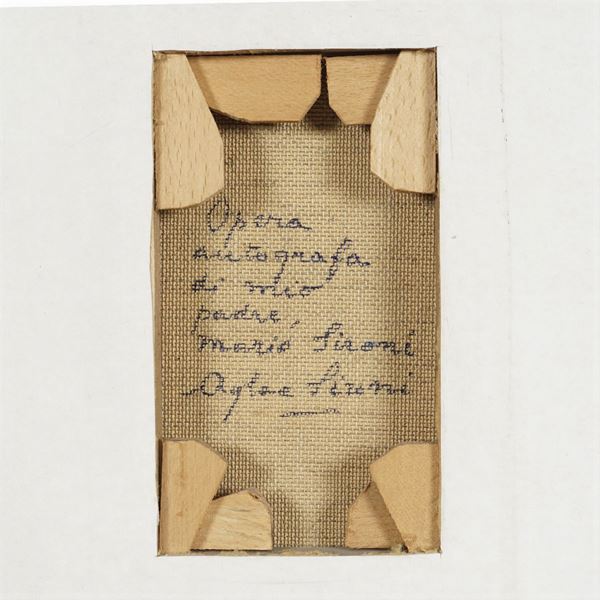 Opera
autografa
di mio
padre,
Mario Sironi
Aglae Sironi